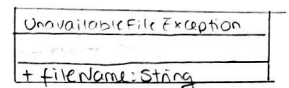 UnavailableFileException
+ fileName: String